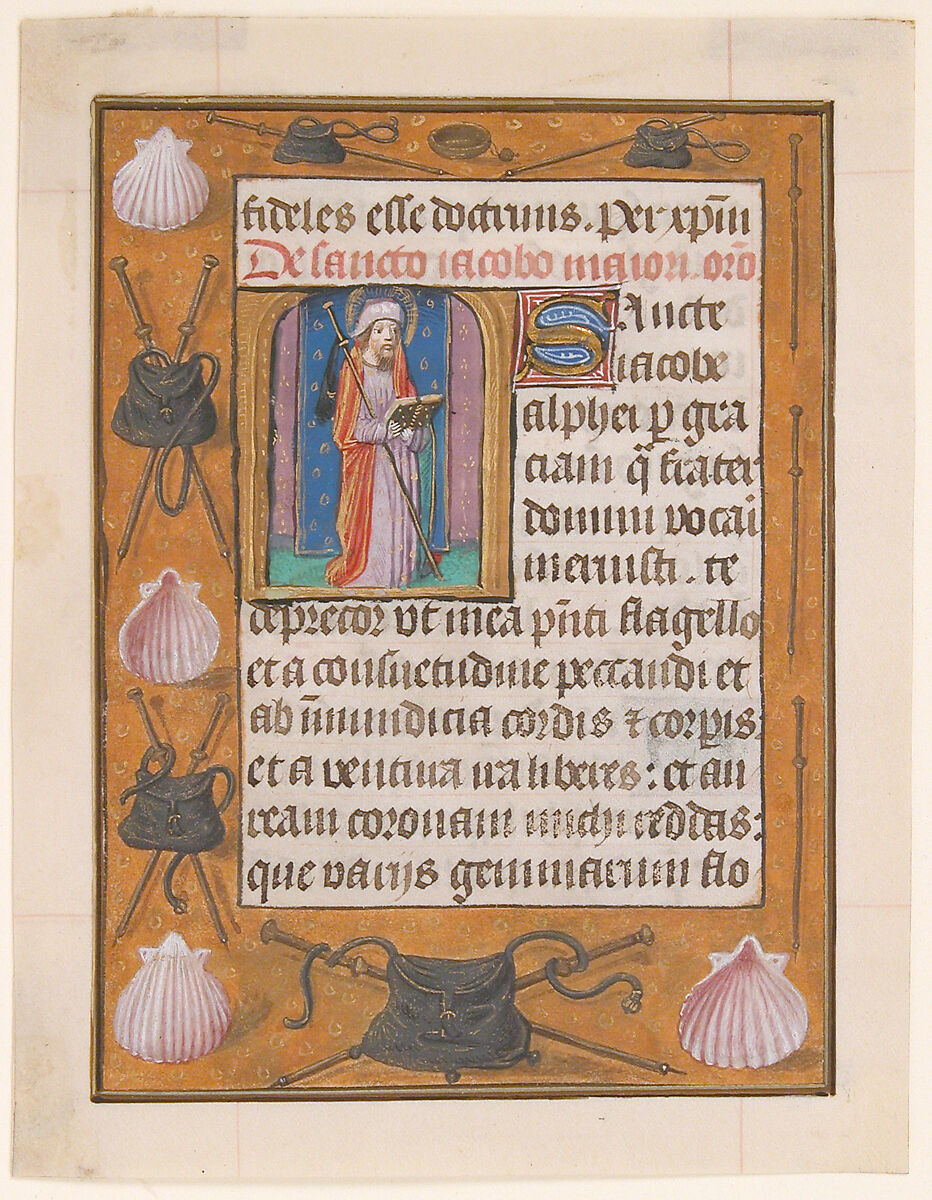 fideles esse doctrinis. Per xp̄m
De sancto iacobo maiori. orō.
SAncte
iacobe
alphei ꝑ gra
ciam q̄ frater
domini vocari
meruisti. te
deprecor vt mea p̄nti flagello
et a consuetudine peccandi et
ab īmundicia cordis ⁊ corꝑis:
et a ventura ira liberes: et au
ream coronam michi reddas:
que varijs gemmarum flo